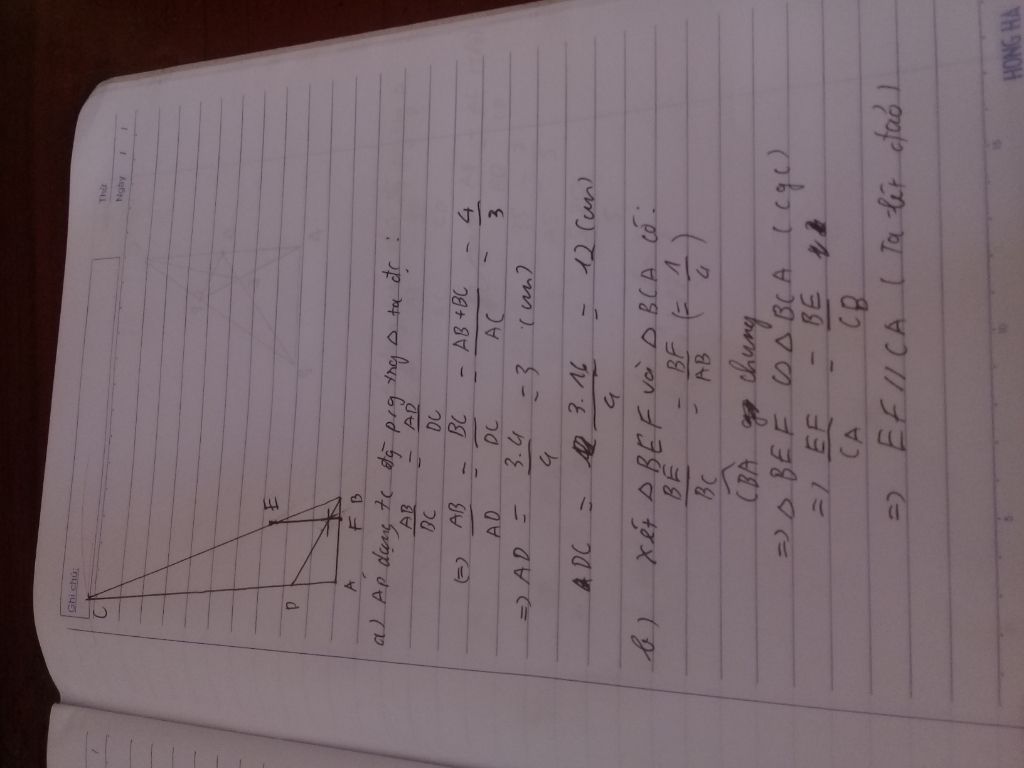 Thứ
Ngày / /
Ghi chú:
C
E
D
A F B
a) Áp dụng t/c đg prg trg Δ ta đc:
AB/BC = AD/DC
(=) AB/AD = BC/DC = AB+BC/AC = 4/3
=> AD = 3.4/4 = 3 (cm)
DC = 3.16/4 = 12 (cm)
b) Xét Δ BEF và Δ BCA có:
BE/BC = BF/AB (= 1/4)
CBA chung
=> Δ BEF ∽ Δ BCA (cgc)
=> EF/CA = BE/CB
=> EF // CA (Ta lét đảo)
5 10 15
HONG HA